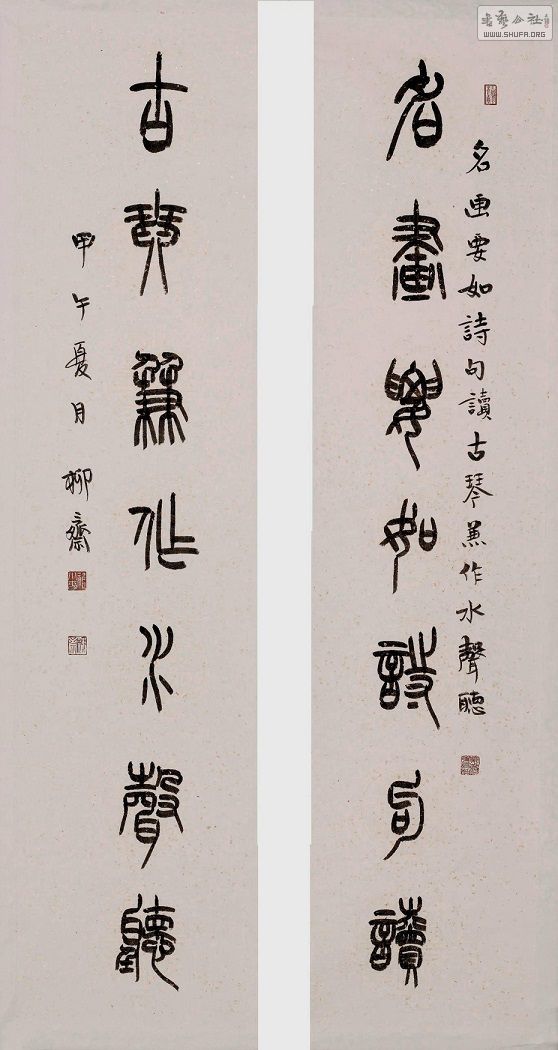 名畫要如詩句讀
名画要如詩句讀古琴兼作水聲聽
古琴兼作水聲聽
甲午夏月 柳齋
書藝公社
WWW.SHUFA.ORG